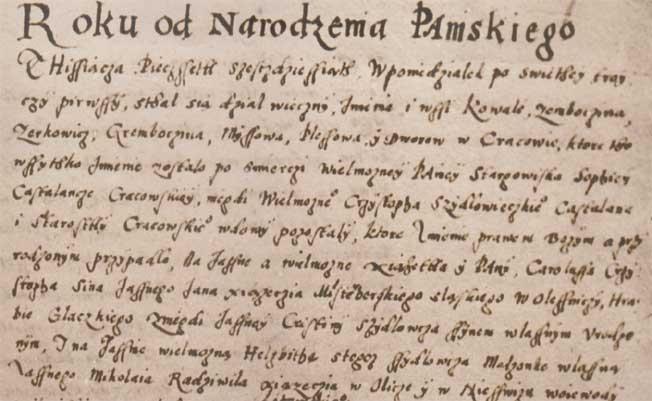 Roku od Narodzenia Pamskiego
Thissiącza Pieczssettt Szesczdziessiath, Wponiedzialek po swiethey tray
czy pirwssy, sthal sia dzial wieczny, Imenia i wssi Kowale, zembocznia,
Zerkowicz, Grembocznia, Myssowa, Plessowa, y Dworow w Cracowie, ktore tho
wssythko Imenie zostalo po smierczi Wielmozney Paniey Stargowiska Sophiey
Castalance Cracowskiey, niegdi Wielmozneo Crzysthopha Szydlowieczkieo Castalana
i Starosthy Cracowskieo wdowy pozostaly, ktore Imienie prawem Bozym a przy
rodzonym przypadlo, Na Jassne a wielmozne xiazetha y Pany, Carolussa Crzy
stopha sina Jassnego Jana xiazecia Misterberskiego slaskiego w Olessniczy, Hra
bie Glaczkiego zniegdi Jassney Cristiny Szydlowca ssynem wlassnym Vrodzo
nym, I na Jassne wielmozną Helzbitha stegoz ssydlowca Malzonke wlassną
Jassnego Mikolaia Radziwila xiazecia w Olicze y w Niesswizu woiewody